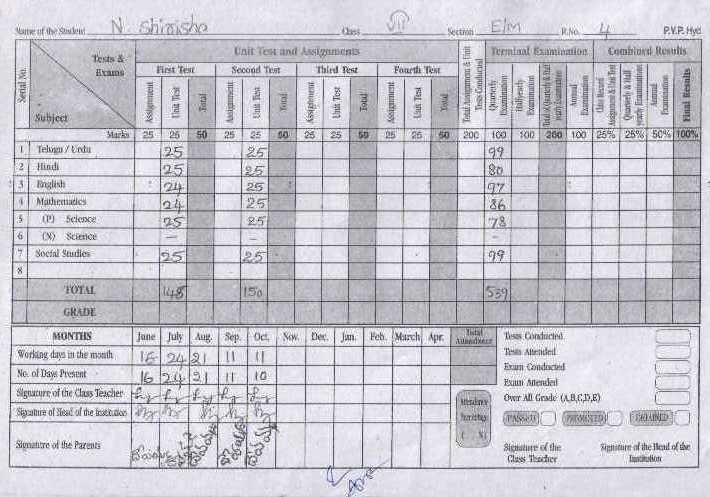 Name of the Student N. Shirisha Class VII Section E/M R.No. 4 P.V.P. Hyd
Serial No. Tests & Exams Subject Unit Test and Assignments Total Assignment & Unit Tests Conducted Terminal Examination Combined Results
First Test Second Test Third Test Fourth Test
Assignment Unit Test Total Assignment Unit Test Total Assignment Unit Test Total Assignment Unit Test Total Quarterly Examination Halfyearly Examination Total of Quarterly & Half yearly Examination Annual Examination Assignment & Unit Test Quarterly & Half yearly Examination Annual Examination Final Results
Marks 25 25 50 25 25 50 25 25 50 25 25 50 200 100 100 200 100 25% 25% 50% 100%
1 Telugu / Urdu 25 25 99
2 Hindi 25 25 80
3 English 24 25 97
4 Mathematics 24 25 86
5 (P) Science 25 25 78
6 (N) Science - - -
7 Social Studies 25 25 99
8
TOTAL 148 150 539
GRADE
MONTHS June July Aug. Sep. Oct. Nov. Dec. Jan. Feb. March Apr. Total
Working days in the month 16 24 21 11 11
No. of Days Present 16 24 21 11 10
Signature of the Class Teacher
Signature of Head of the Institution
Signature of the Parents
Attendance Percentage ( %)
Tests Conducted
Tests Attended
Exam Conducted
Exam Attended
Over All Grade (A,B,C,D,E)
PASSED PROMOTED DETAINED
Signature of the Class Teacher
Signature of the Head of the Institution